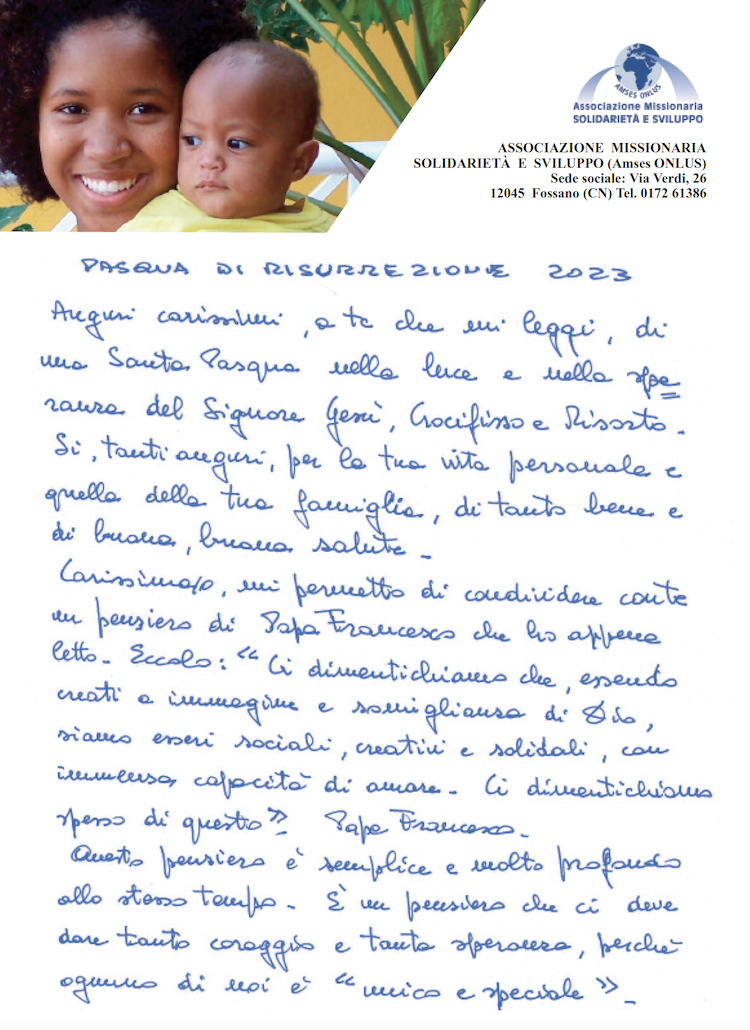 AMSES ONLUS
Associazione Missionaria
SOLIDARIETÀ E SVILUPPO
ASSOCIAZIONE MISSIONARIA
SOLIDARIETÀ E SVILUPPO (Amses ONLUS)
Sede sociale: Via Verdi, 26
12045 Fossano (CN) Tel. 0172 61386
PASQUA DI RISURREZIONE 2023
Auguri carissimi, a te che mi leggi, di
una Santa Pasqua nella luce e nella spe
ranza del Signore Gesù, Crocifisso e Risorto.
Sì, tanti auguri, per la tua vita personale e
quella della tua famiglia, di tanto bene e
di buona, buona salute.
Carissima/o, mi permetto di condividere con te
un pensiero di Papa Francesco che ho appena
letto. Eccolo: "Ci dimentichiamo che, essendo
creati a immagine e somiglianza di Dio,
siamo esseri sociali, creativi e solidali, con
immensa capacità di amare. Ci dimentichiamo
spesso di questo" Papa Francesco.
Questo pensiero è semplice e molto profondo
allo stesso tempo. È un pensiero che ci deve
dare tanto coraggio e tanta speranza, perchè
ognuno di noi è "unico e speciale".